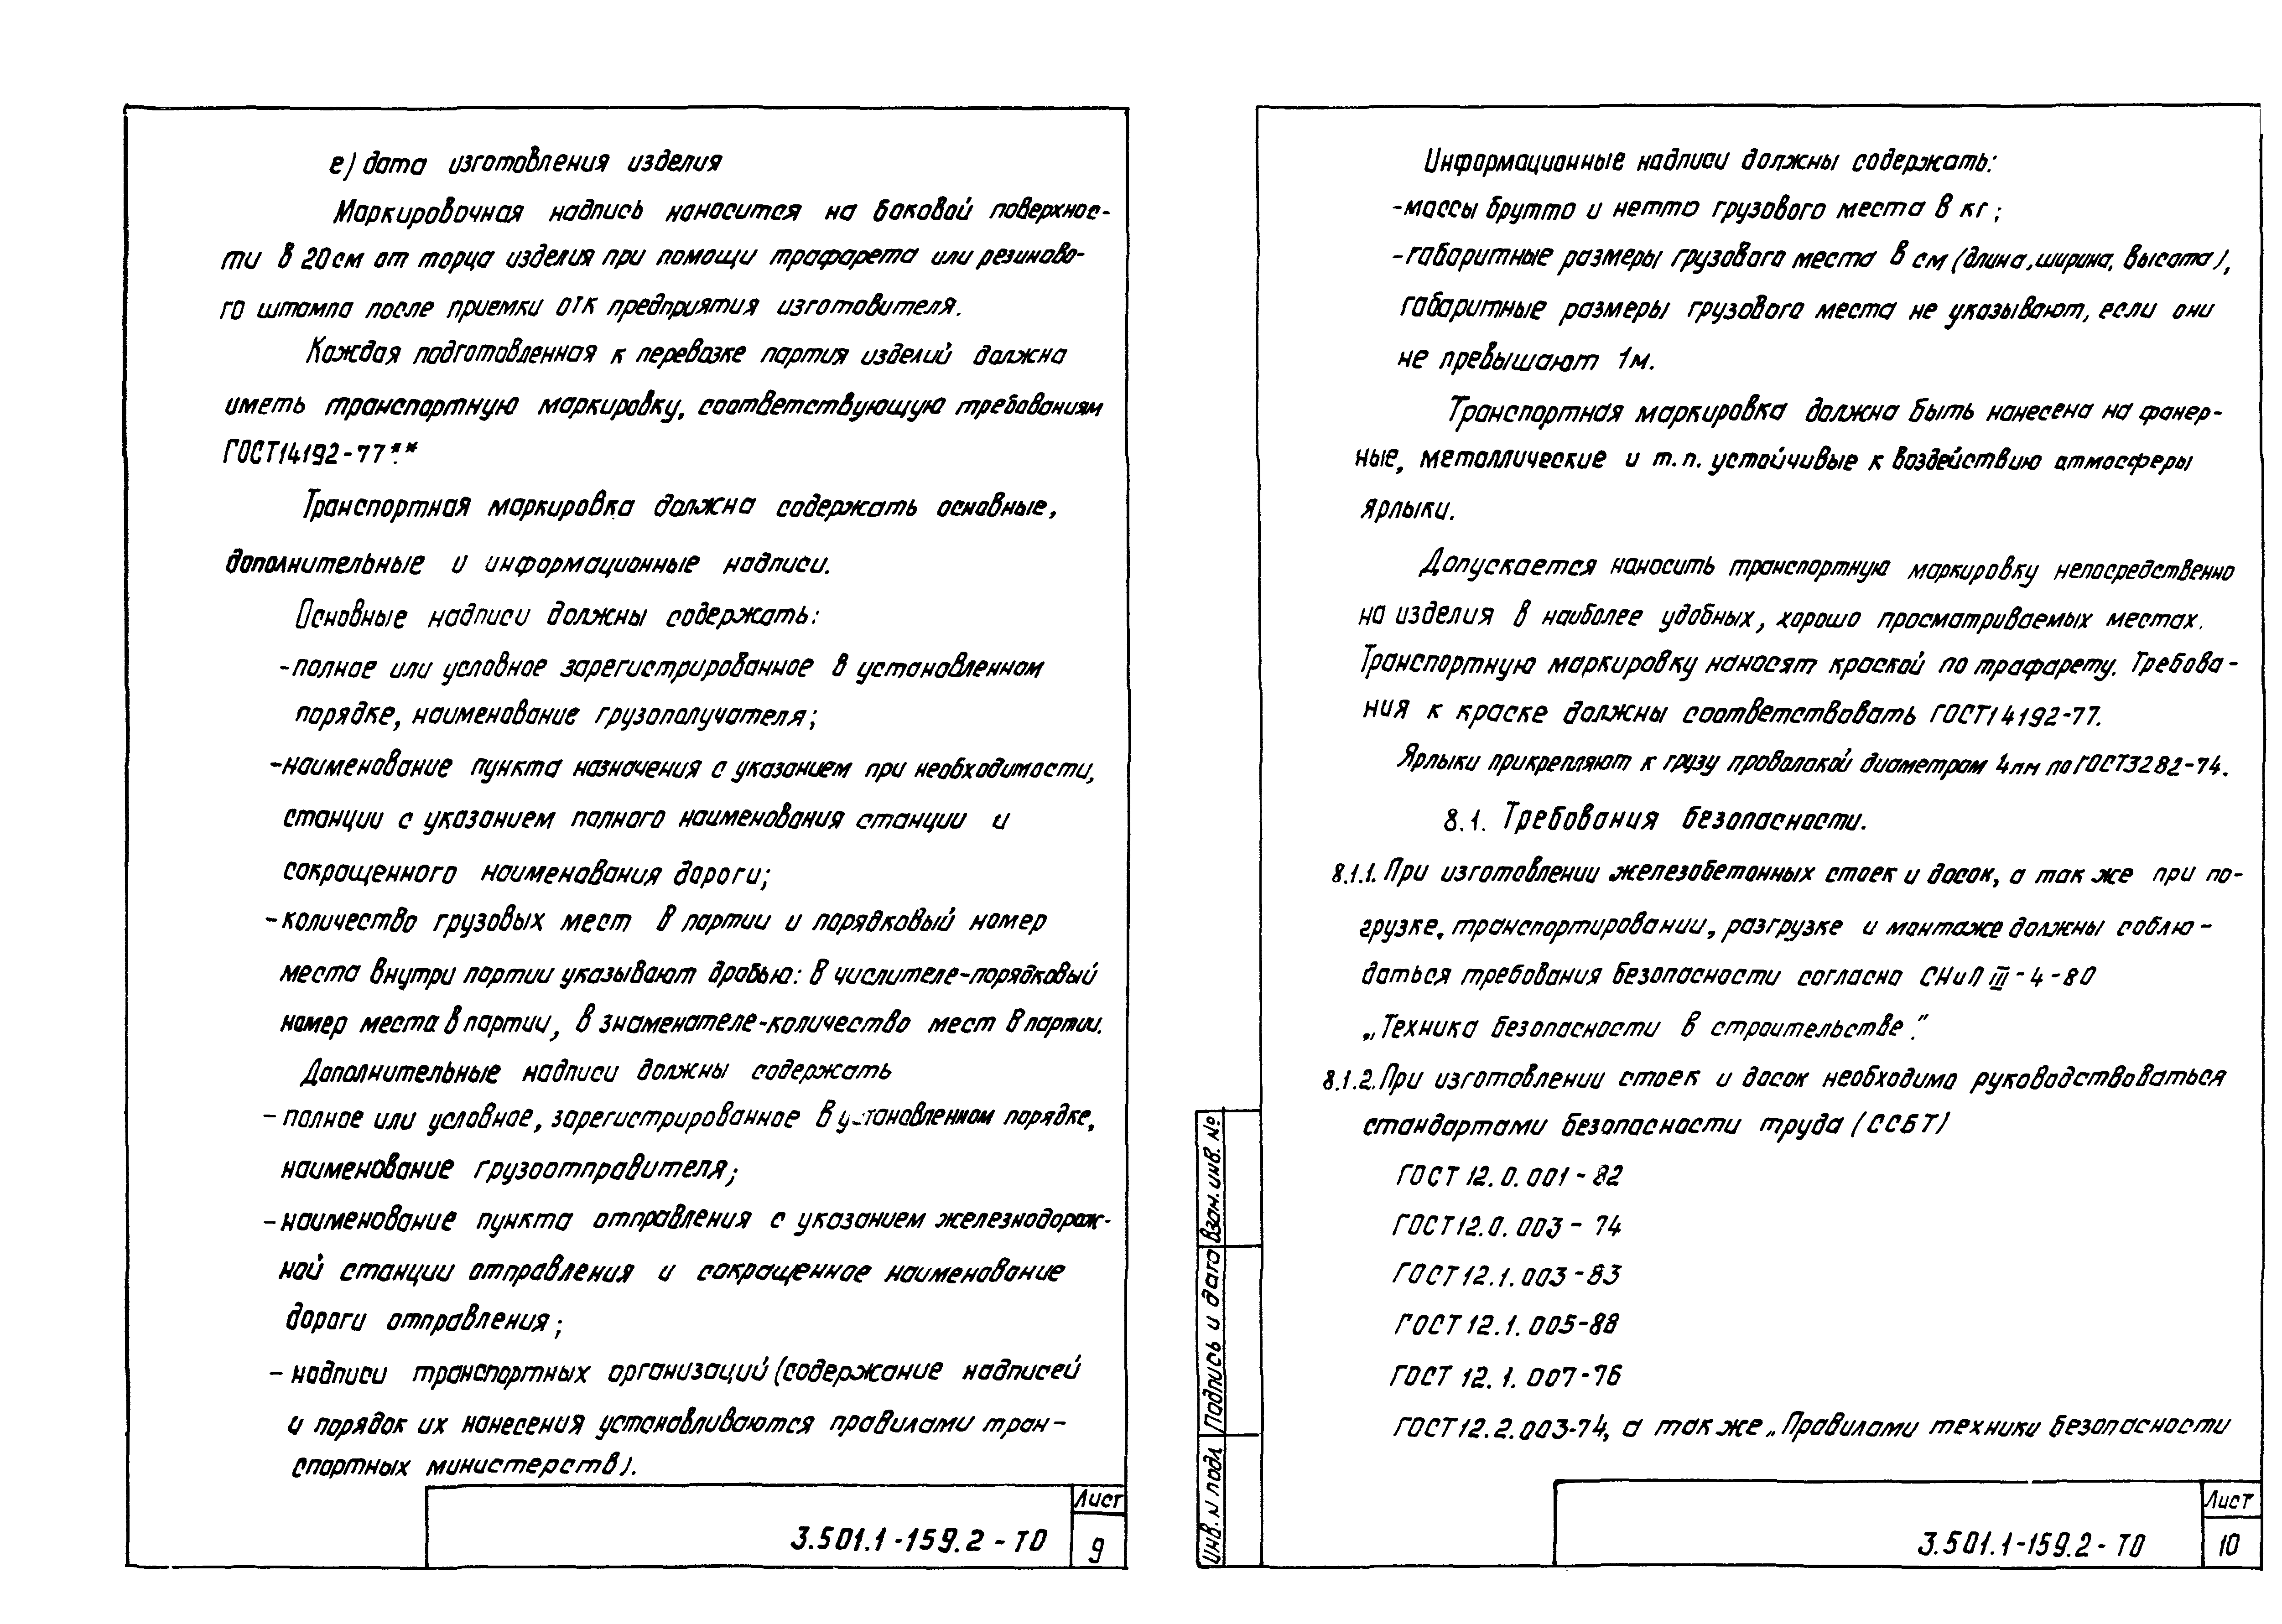 е) дата изготовления изделия
Маркировочная надпись наносится на боковой поверхнос-
ти в 20см от торца изделия при помощи трафарета или резиново-
го штампа после приемки ОТК предприятия изготовителя.
Каждая подготовленная к перевозке партия изделий должна
иметь транспортную маркировку, соответствующую требованиям
ГОСТ14192-77**.
Транспортная маркировка должна содержать основные,
дополнительные и информационные надписи.
Основные надписи должны содержать:
-полное или условное зарегистрированное в установленном
порядке, наименование грузополучателя;
-наименование пункта назначения с указанием при необходимости,
станции с указанием полного наименования станции и
сокращенного наименования дороги;
-количество грузовых мест в партии и порядковый номер
места внутри партии указывают дробью: в числителе-порядковый
номер места в партии, в знаменателе-количество мест в партии.
Дополнительные надписи должны содержать
- полное или условное, зарегистрированное в установленном порядке,
наименование грузоотправителя;
- наименование пункта отправления с указанием железнодорож-
ной станции отправления и сокращенное наименование
дороги отправления;
- надписи транспортных организаций (содержание надписей
и порядок их нанесения устанавливаются правилами тран-
спортных министерств).
3.501.1-159.2-ТО
Лист
9
Информационные надписи должны содержать:
-массы брутто и нетто грузового места в кг;
-габаритные размеры грузового места в см (длина, ширина, высота),
габаритные размеры грузового места не указывают, если они
не превышают 1м.
Транспортная маркировка должна быть нанесена на фанер-
ные, металлические и т.п. устойчивые к воздействию атмосферы
ярлыки.
Допускается наносить транспортную маркировку непосредственно
на изделия в наиболее удобных, хорошо просматриваемых местах.
Транспортную маркировку наносят краской по трафарету. Требова-
ния к краске должны соответствовать ГОСТ14192-77.
Ярлыки прикрепляют к грузу проволокой диаметром 4мм по ГОСТ3282-74.
8.1. Требования безопасности.
8.1.1. При изготовлении железобетонных стоек и досок, а так же при по-
грузке, транспортировании, разгрузке и монтаже должны соблю-
даться требования безопасности согласно СНиП III-4-80
„Техника безопасности в строительстве".
8.1.2. При изготовлении стоек и досок необходимо руководствоваться
стандартами безопасности труда (ССБТ)
ГОСТ 12.0.001-82
ГОСТ12.0.003-74
ГОСТ12.1.003-83
ГОСТ 12.1.005-88
ГОСТ 12.1.007-76
ГОСТ12.2.003-74, а так же „Правилами техники безопасности
Инв. N подл.
Подпись и дата
Взам. инв. №
3.501.1-159.2-ТО
Лист
10